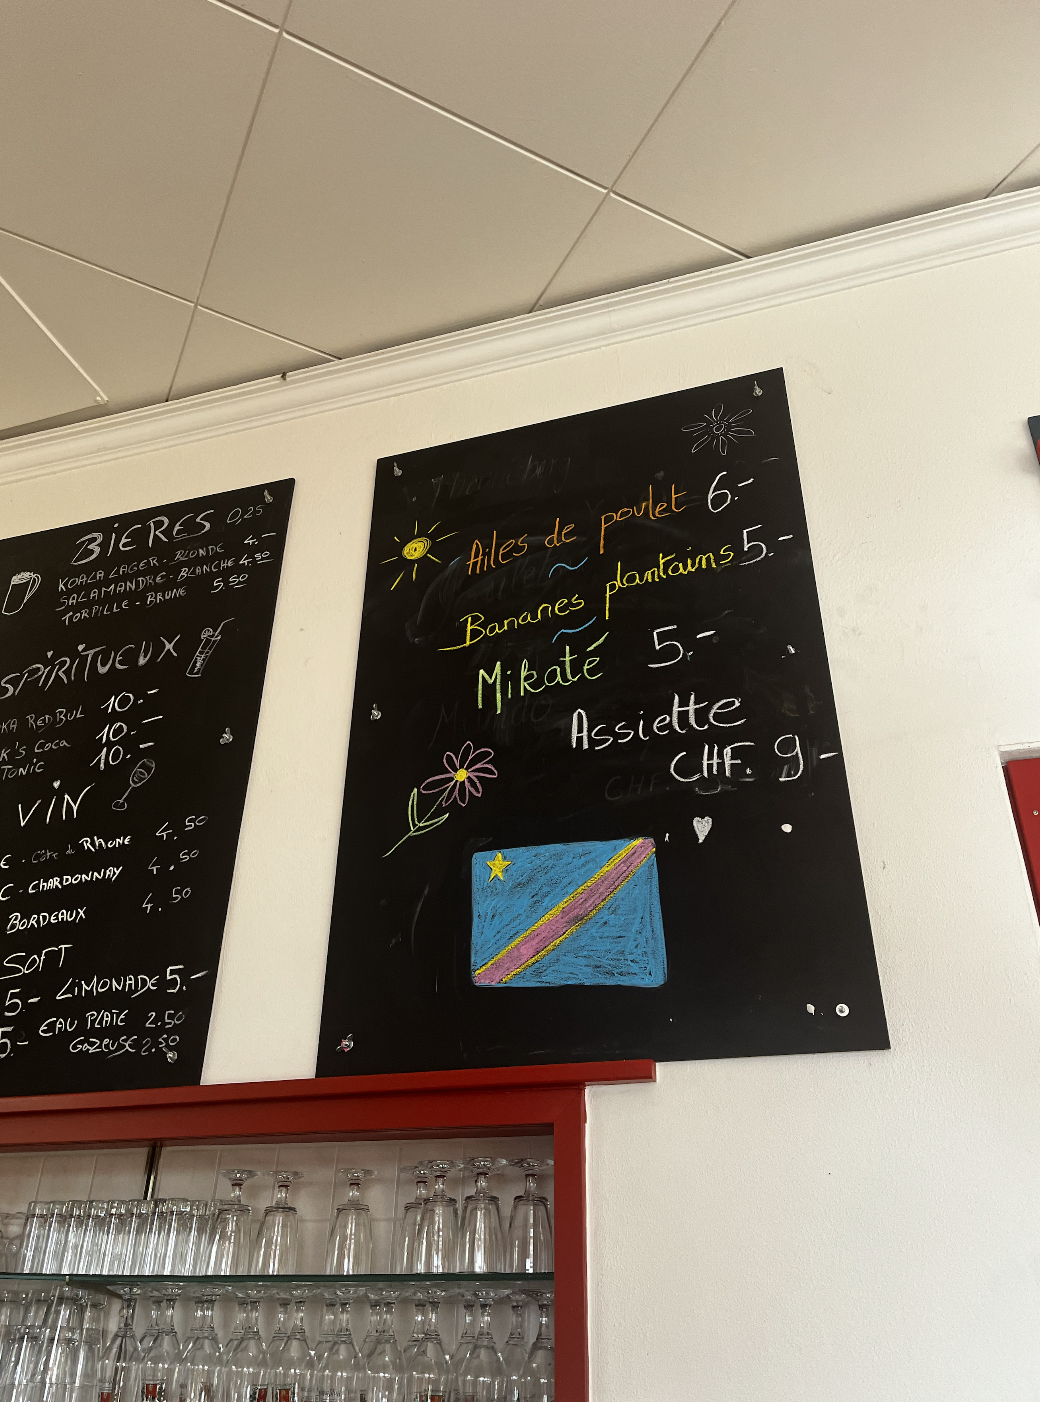 BIERES 0,25
KOALA LAGER - BLONDE 4.-
SALAMANDRE - BLANCHE 4.50
TORPILLE - BRUNE 5.50
SPIRITUEUX
KA RED BUL 10.-
K'S COCA 10.-
TONIC 10.-
VIN
E - Côte du RHONE 4.50
C - CHARDONNAY 4.50
BORDEAUX 4.50
SOFT
5.- LIMONADE 5.-
5.- EAU PLATE 2.50
GAZEUSE 2.50
Ailes de poulet 6.-
~
Bananes plantains 5.-
~
Mikaté 5.-
Assiette
CHF. 9-